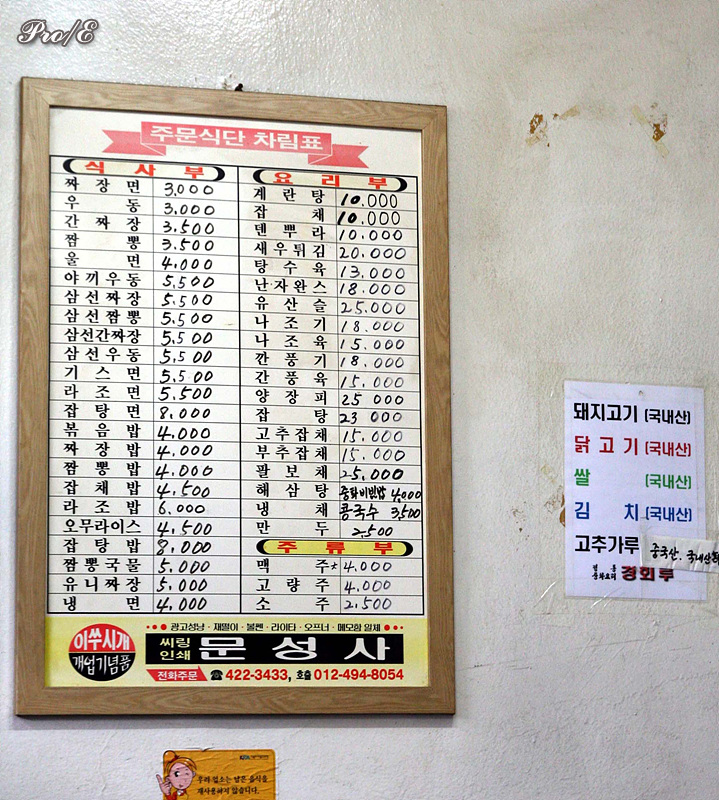 Pro/E
주문식단 차림표
식사부
짜장면 3,000
우동 3,000
간짜장 3,500
짬뽕 3,500
울면 4,000
야끼우동 5,500
삼선짜장 5,500
삼선짬뽕 5,500
삼선간짜장 5,500
삼선우동 5,500
기스면 5,500
라조면 5,500
잡탕면 8,000
볶음밥 4,000
짜장밥 4,000
짬뽕밥 4,000
잡채밥 4,500
라조밥 6.000
오무라이스 4,500
잡탕밥 8,000
짬뽕국물 5,000
유니짜장 5,000
냉면 4,000
요리부
계란탕 10.000
잡채 10.000
덴뿌라 10.000
새우튀김 20.000
탕수육 13.000
난자완스 18.000
유산슬 25.000
나조기 18.000
나조육 15.000
깐풍기 18.000
간풍육 15.000
양장피 25 000
잡탕 23 000
고추잡채 15.000
부추잡채 15.000
팔보채 25.000
해삼탕 중화비빔밥 4,000
냉채 콩국수 3,500
만두 2,500
주류부
맥주 4.000
고량주 4.000
소주 2.500
이쑤시개
개업기념품
광고성냥 · 재떨이 · 볼펜 · 라이타 · 오프너 · 메모함 일체
씨링 인쇄 문성사
전화주문 ☎ 422-3433, 호출 012-494-8054
돼지고기 (국내산)
닭고기 (국내산)
쌀 (국내산)
김치 (국내산)
고추가루 중국산. 국내산
중화요리 경회루
우리 업소는 남은 음식을
재사용하지 않습니다.